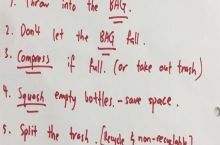 1. Throw into the BAG.
2. Don't let the BAG fall.
3. Compress if full. (or take out trash)
4. Squash empty bottles. - save space.
5. Split the trash. (Recycle & non-recyclable)